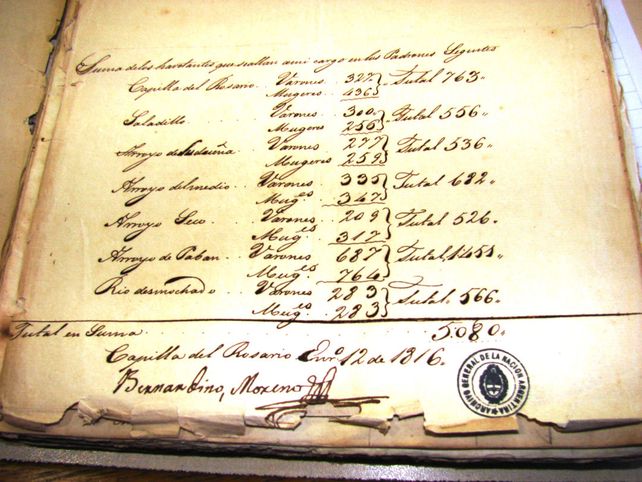 Suma delos havitantes que seallan ami cargo en los Padrones Seguites
Capilla del Rosario Varones .. 327
Mugeres 436 Tutal 763,,
Saladillo Varones .. 300
Mugeres 256 Tutal 556,,
Arroyo de Varones .. 277
Mugeres 259 Tutal 536,,
Arroyo delmedio .. Varones .. 335
Mug.es .. 347 Tutal 682,,
Arroyo Seco .. Varones .. 209
Mug.es .. 317 Tutal 526,,
Arroyo de Paban .. Varones 687
Mug.es 764 Tutal, 1451,,
Rio desmochado .. Varones 283
Mug.es .. 283 Tutal. 566,,
Tutal en Suma 5.080,,
Capilla del Rosario Enr.o 12 de 1816,,
Bernardino, Moreno
ARCHIVO GENERAL DE LA NACION ARGENTINA